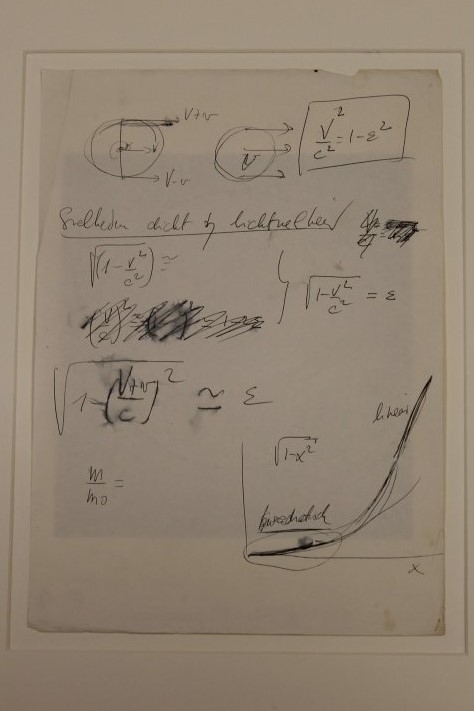 V+v
V-v
V
V²/c² = 1-ε²
Snelheden dicht bij lichtsnelheid
√(1-V²/c²) ≃
√(1-V²/c²) = ε
√(1-((V+v)/c)²) ≃ ε
m/m₀ =
√(1-x²)
lineair
kwadratisch
x